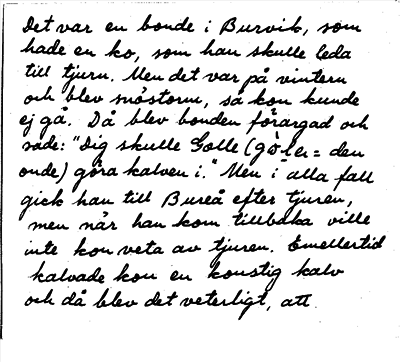 Det var en bonde i Burvik, som
hade en ko, som han skulle leda
till tjurn. Men det var på vintern
och blev snöstorm, så kon kunde
ej gå. Då blev bonden förargad och
sade: "Dig skulle Golle (gòlen = den
onde) göra kalven i." Men i alla fall
gick han till Bureå efter tjuren,
men når han kom tillbaka ville
inte kon veta av tjuren. Emellertid
kalvade kon en konstig kalv
och då blev det veterligt, att